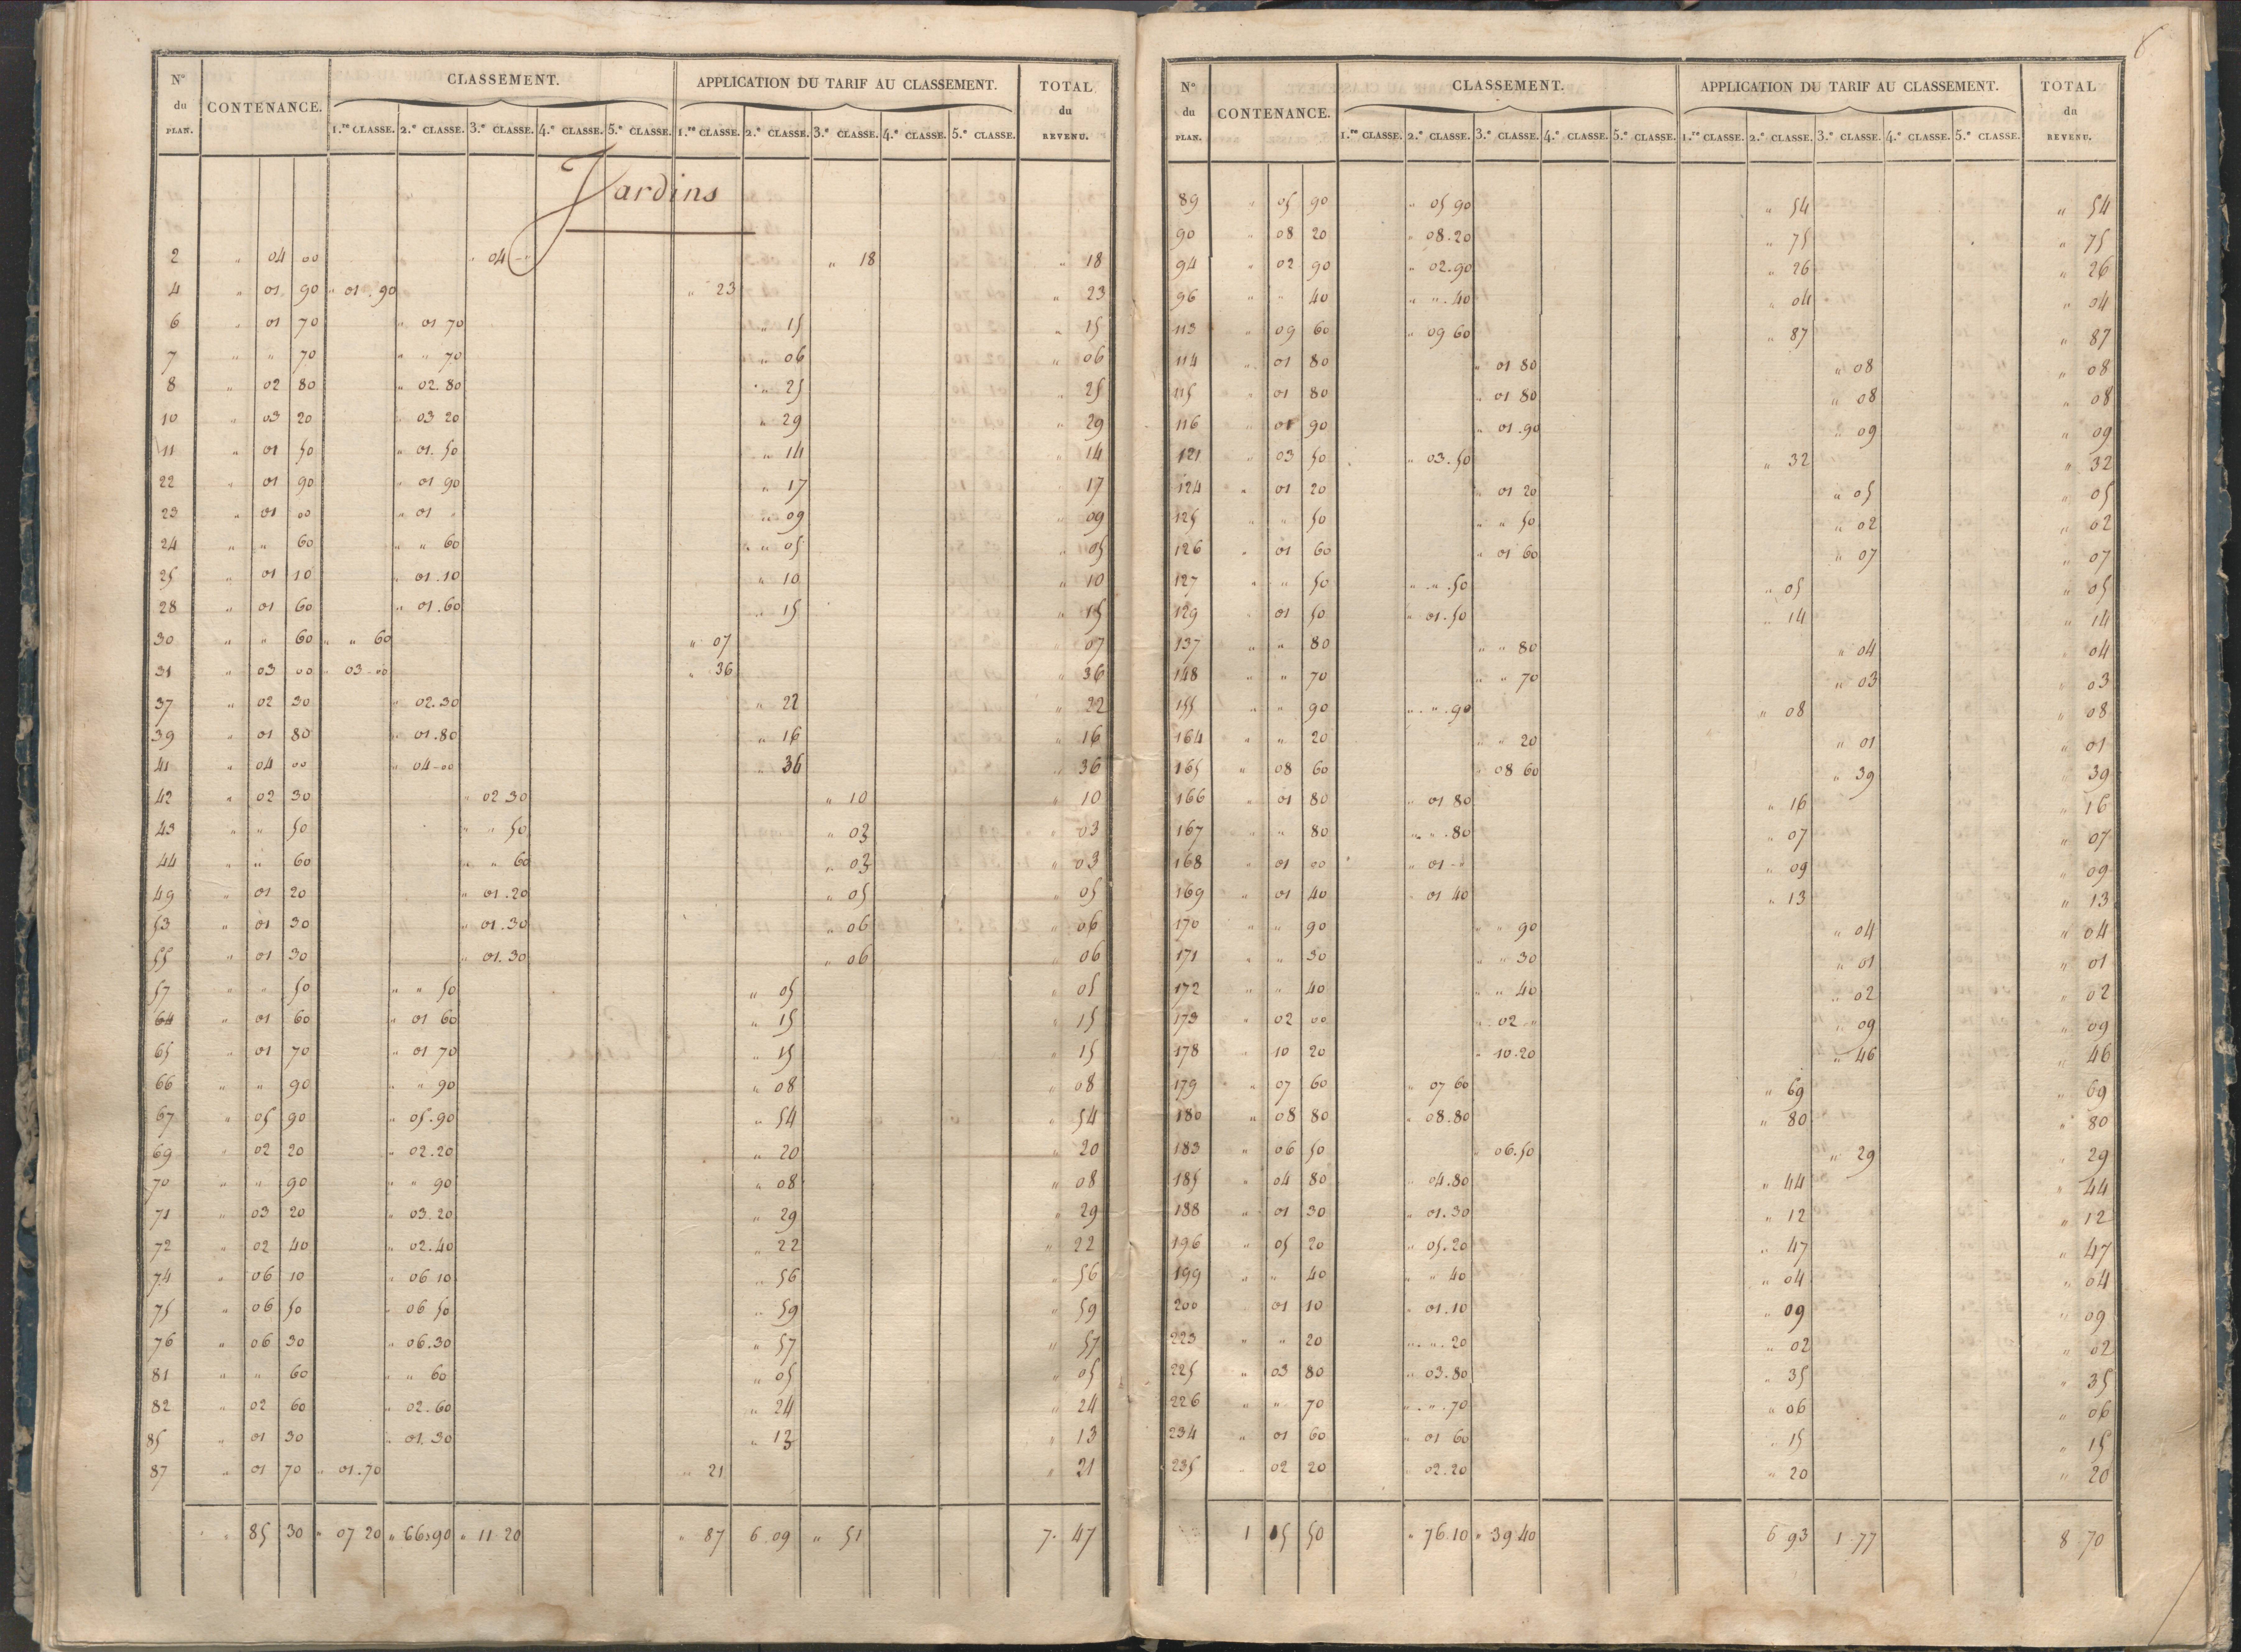 8
N° du PLAN. CONTENANCE. CLASSEMENT. APPLICATION DU TARIF AU CLASSEMENT. TOTAL du REVENU.
1.re CLASSE. 2.e CLASSE. 3.e CLASSE. 4.e CLASSE. 5.e CLASSE. 1.re CLASSE. 2.e CLASSE. 3.e CLASSE. 4.e CLASSE. 5.e CLASSE.
Jardins
2 " 04 00 " 04 - " " 18 " 18
4 " 01 90 " 01.90 " 23 " 23
6 " 01 70 " 01 70 " 15 " 15
7 " " 70 " " 70 " 06 " 06
8 " 02 80 " 02.80 " 25 " 25
10 " 03 20 " 03 20 " 29 " 29
11 " 01 50 " 01.50 " 14 " 14
22 " 01 90 " 01 90 " 17 " 17
23 " 01 00 " 01 " " 09 " 09
24 " " 60 " " 60 " 05 " 05
25 " 01 10 " 01.10 " 10 " 10
28 " 01 60 " 01.60 " 15 " 15
30 " " 60 " " 60 " 07 " 07
31 " 03 00 " 03-00 " 36 " 36
37 " 02 30 " 02.30 " 22 " 22
39 " 01 80 " 01.80 " 16 " 16
41 " 04 00 " 04-00 " 36 " 36
42 " 02 30 " 02 30 " 10 " 10
43 " " 50 " " 50 " 03 " 03
44 " " 60 " " 60 " 03 " 03
49 " 01 20 " 01.20 " 05 " 05
53 " 01 30 " 01.30 " 06 " 06
55 " 01 30 " 01.30 " 06 " 06
57 " " 50 " " 50 " 05 " 05
64 " 01 60 " 01 60 " 15 " 15
65 " 01 70 " 01 70 " 15 " 15
66 " " 90 " " 90 " 08 " 08
67 " 05 90 " 05.90 " 54 " 54
69 " 02 20 " 02.20 " 20 " 20
70 " " 90 " " 90 " 08 " 08
71 " 03 20 " 03.20 " 29 " 29
72 " 02 40 " 02.40 " 22 " 22
74 " 06 10 " 06 10 " 56 " 56
75 " 06 50 " 06 50 " 59 " 59
76 " 06 30 " 06.30 " 57 " 57
81 " " 60 " " 60 " 05 " 05
82 " 02 60 " 02.60 " 24 " 24
85 " 01 30 " 01.30 " 13 " 13
87 " 01 70 " 01.70 " 21 " 21
" 85 30 " 07 20 " 66.90 " 11 20 " 87 6 09 " 51 7. 47
N° du PLAN. CONTENANCE. CLASSEMENT. APPLICATION DU TARIF AU CLASSEMENT. TOTAL du REVENU.
1.re CLASSE. 2.e CLASSE. 3.e CLASSE. 4.e CLASSE. 5.e CLASSE. 1.re CLASSE. 2.e CLASSE. 3.e CLASSE. 4.e CLASSE. 5.e CLASSE.
89 " 05 90 " 05 90 " 54 " 54
90 " 08 20 " 08.20 " 75 " 75
94 " 02 90 " 02.90 " 26 " 26
96 " " 40 " ".40 " 04 " 04
113 " 09 60 " 09 60 " 87 " 87
114 " 01 80 " 01 80 " 08 " 08
115 " 01 80 " 01 80 " 08 " 08
116 " 01 90 " 01.90 " 09 " 09
121 " 03 50 " 03.50 " 32 " 32
124 " 01 20 " 01 20 " 05 " 05
125 " " 50 " " 50 " 02 " 02
126 " 01 60 " 01 60 " 07 " 07
127 " " 50 " ".50 " 05 " 05
129 " 01 50 " 01.50 " 14 " 14
137 " " 80 " " 80 " 04 " 04
148 " " 70 " " 70 " 03 " 03
155 " " 90 " ".90 " 08 " 08
164 " " 20 " " 20 " 01 " 01
165 " 08 60 " 08 60 " 39 " 39
166 " 01 80 " 01 80 " 16 " 16
167 " " 80 " ".80 " 07 " 07
168 " 01 00 " 01-" " 09 " 09
169 " 01 40 " 01 40 " 13 " 13
170 " " 90 " " 90 " 04 " 04
171 " " 30 " " 30 " 01 " 01
172 " " 40 " " 40 " 02 " 02
173 " 02 00 " 02 " " 09 " 09
178 " 10 20 " 10.20 " 46 " 46
179 " 07 60 " 07 60 " 69 " 69
180 " 08 80 " 08.80 " 80 " 80
183 " 06 50 " 06.50 " 29 " 29
185 " 04 80 " 04.80 " 44 " 44
188 " 01 30 " 01.30 " 12 " 12
196 " 05 20 " 05.20 " 47 " 47
199 " " 40 " " 40 " 04 " 04
200 " 01 10 " 01.10 " 09 " 09
223 " " 20 " ".20 " 02 " 02
225 " 03 80 " 03.80 " 35 " 35
226 " " 70 " ".70 " 06 " 06
234 " 01 60 " 01 60 " 15 " 15
235 " 02 20 " 02.20 " 20 " 20
1 15 50 " 76.10 " 39 40 6 93 1.77 8 70